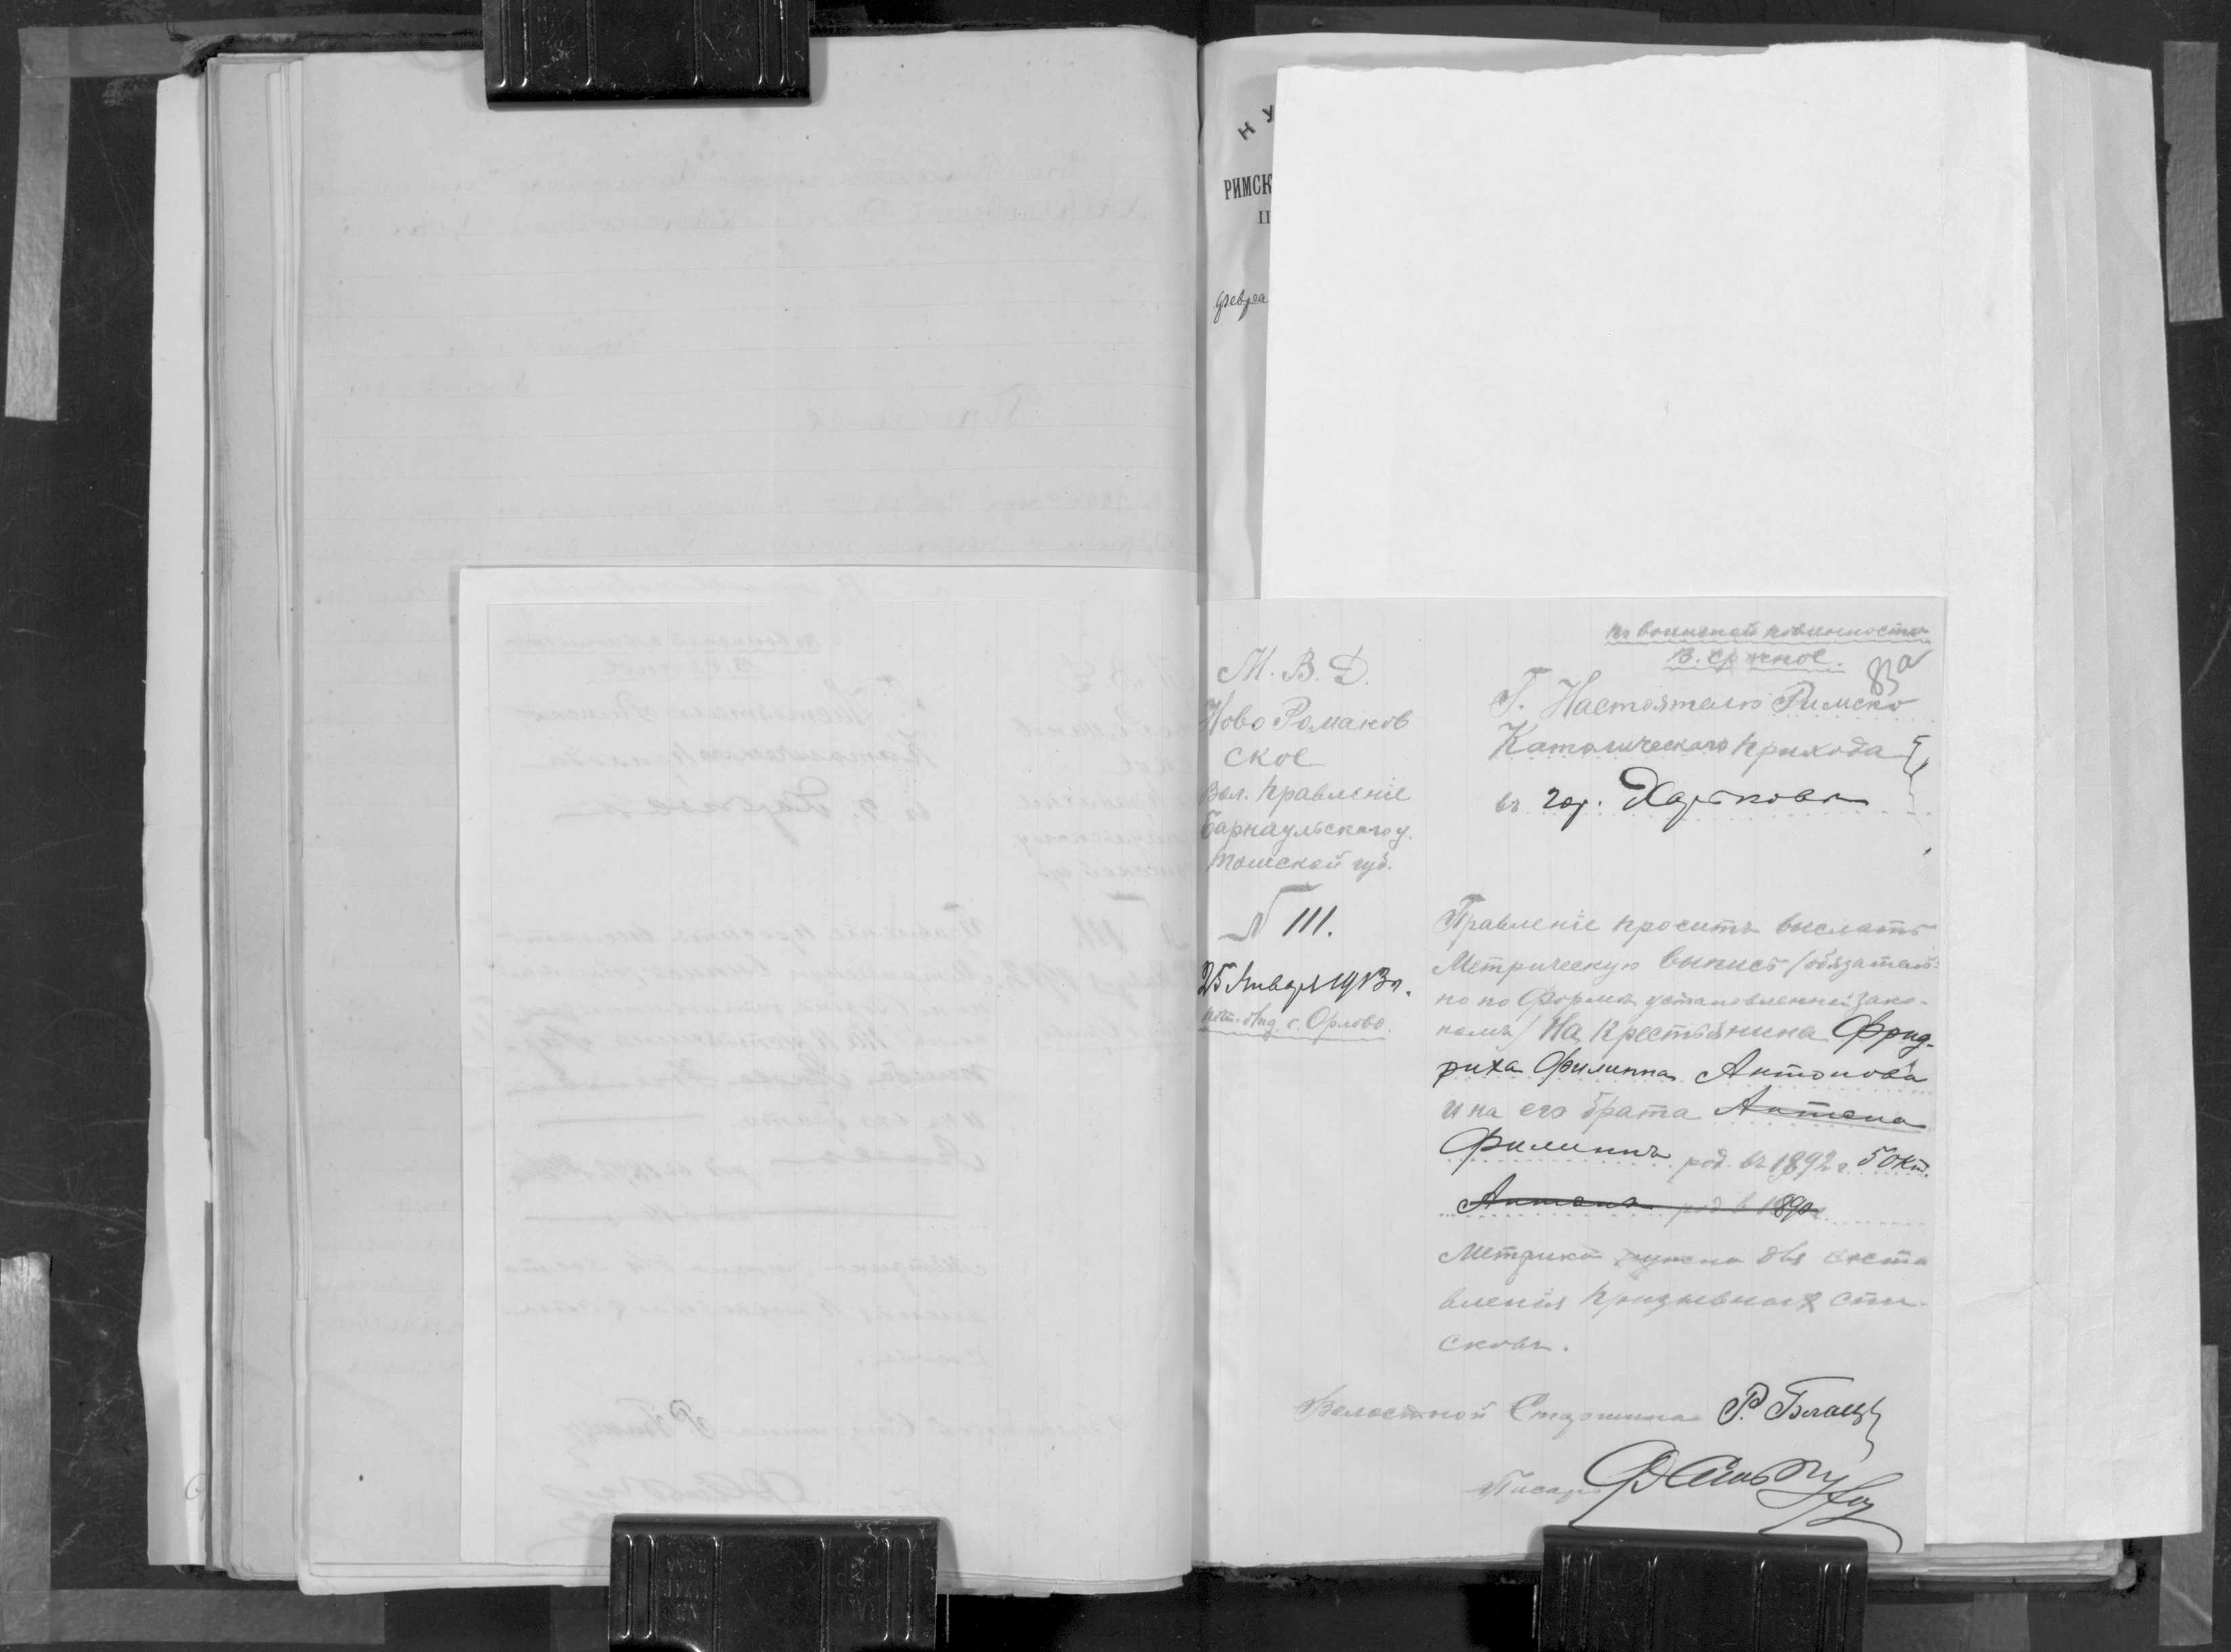 Н У
РИМСК
П
февра
по воинской повинности
В. срочное.
83а
М. В. Д.
Ново Романов
ское
Вол. Правленіе
Барнаульскаго у.
Томской губ.
№ 111.
25 Января 1913 г.
почт. отд. с. Орлово.
Г. Настоятелю Римско
Католическаго прихода
въ гор. Харьковъ
Правленіе проситъ выслать
Метрическую выпись (обязатель-
но по формѣ установленной зако-
номъ) на крестьянина Фрид-
риха Филиппа Антонова
и на его брата Антона
Филиппъ род. въ 1892 г. 5 Окт.
Антонъ род. в 189
Метрика нужна для соста
вленія призывныхъ спи-
сковъ.
Волостной Старшина Р.
Писарь